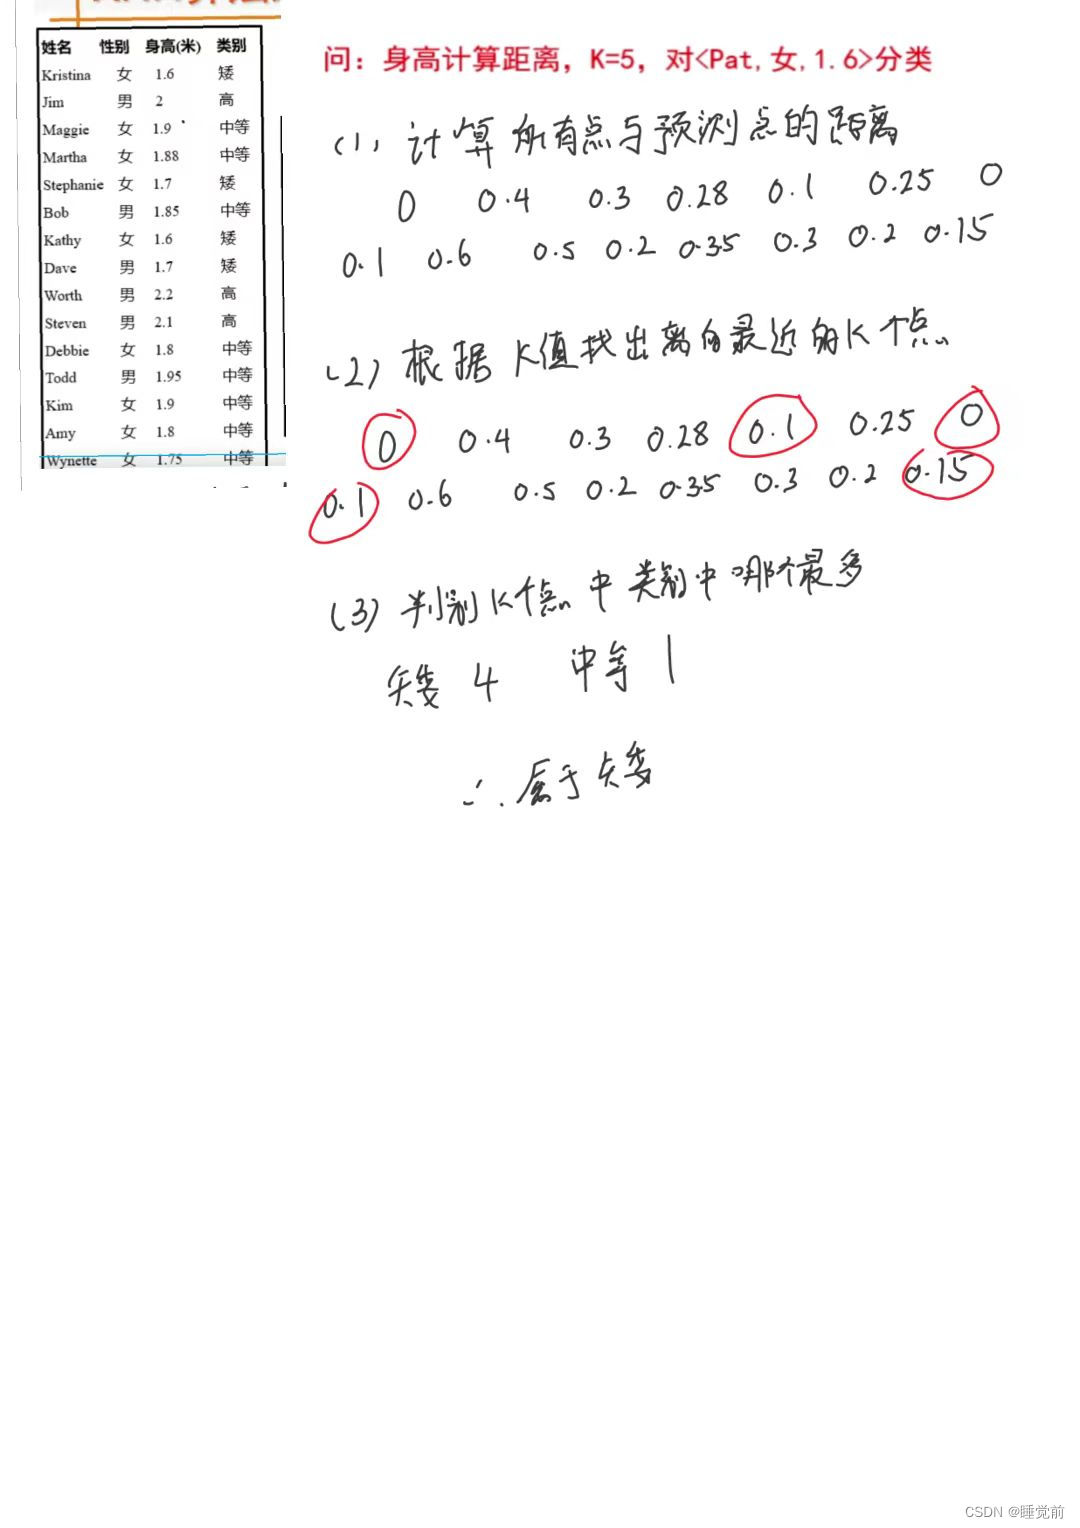 姓名 性别 身高(米) 类别
Kristina 女 1.6 矮
Jim 男 2 高
Maggie 女 1.9 中等
Martha 女 1.88 中等
Stephanie 女 1.7 矮
Bob 男 1.85 中等
Kathy 女 1.6 矮
Dave 男 1.7 矮
Worth 男 2.2 高
Steven 男 2.1 高
Debbie 女 1.8 中等
Todd 男 1.95 中等
Kim 女 1.9 中等
Amy 女 1.8 中等
Wynette 女 1.75 中等
问：身高计算距离，K=5，对<Pat,女,1.6>分类
(1) 计算所有点与预测点的距离
0 0.4 0.3 0.28 0.1 0.25 0
0.1 0.6 0.5 0.2 0.35 0.3 0.2 0.15
(2) 根据K值找出离的最近的K个点
0 0.4 0.3 0.28 0.1 0.25 0
0.1 0.6 0.5 0.2 0.35 0.3 0.2 0.15
(3) 判别K个点中类别中哪个最多
矮 4 中等 1
∴属于矮
CSDN @睡觉前